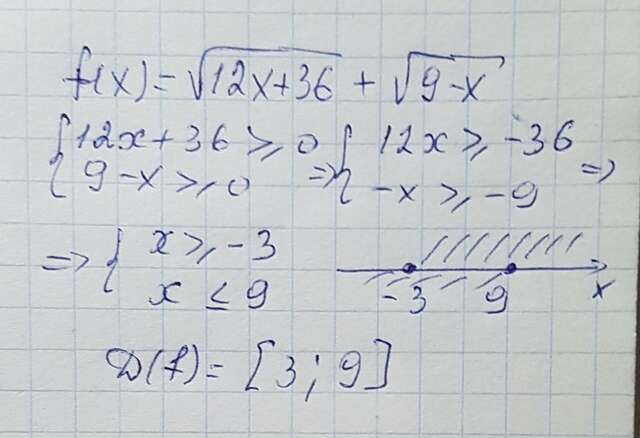 f(x) = √12x+36 + √9-x
{ 12x + 36 ≥ 0 => { 12x ≥ -36 =>
9 - x ≥ 0 -x ≥ -9
=> { x ≥ -3
x ≤ 9
-3 9 x
D(f) = [3; 9]